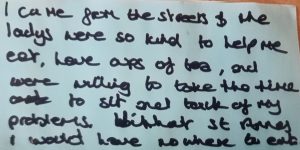 I came from the streets & the
ladys were so kind to help me
eat, have cups of tea, and
were willing to take the time
to sit and talk of my
problems. Without St Annes
I would have no where to end